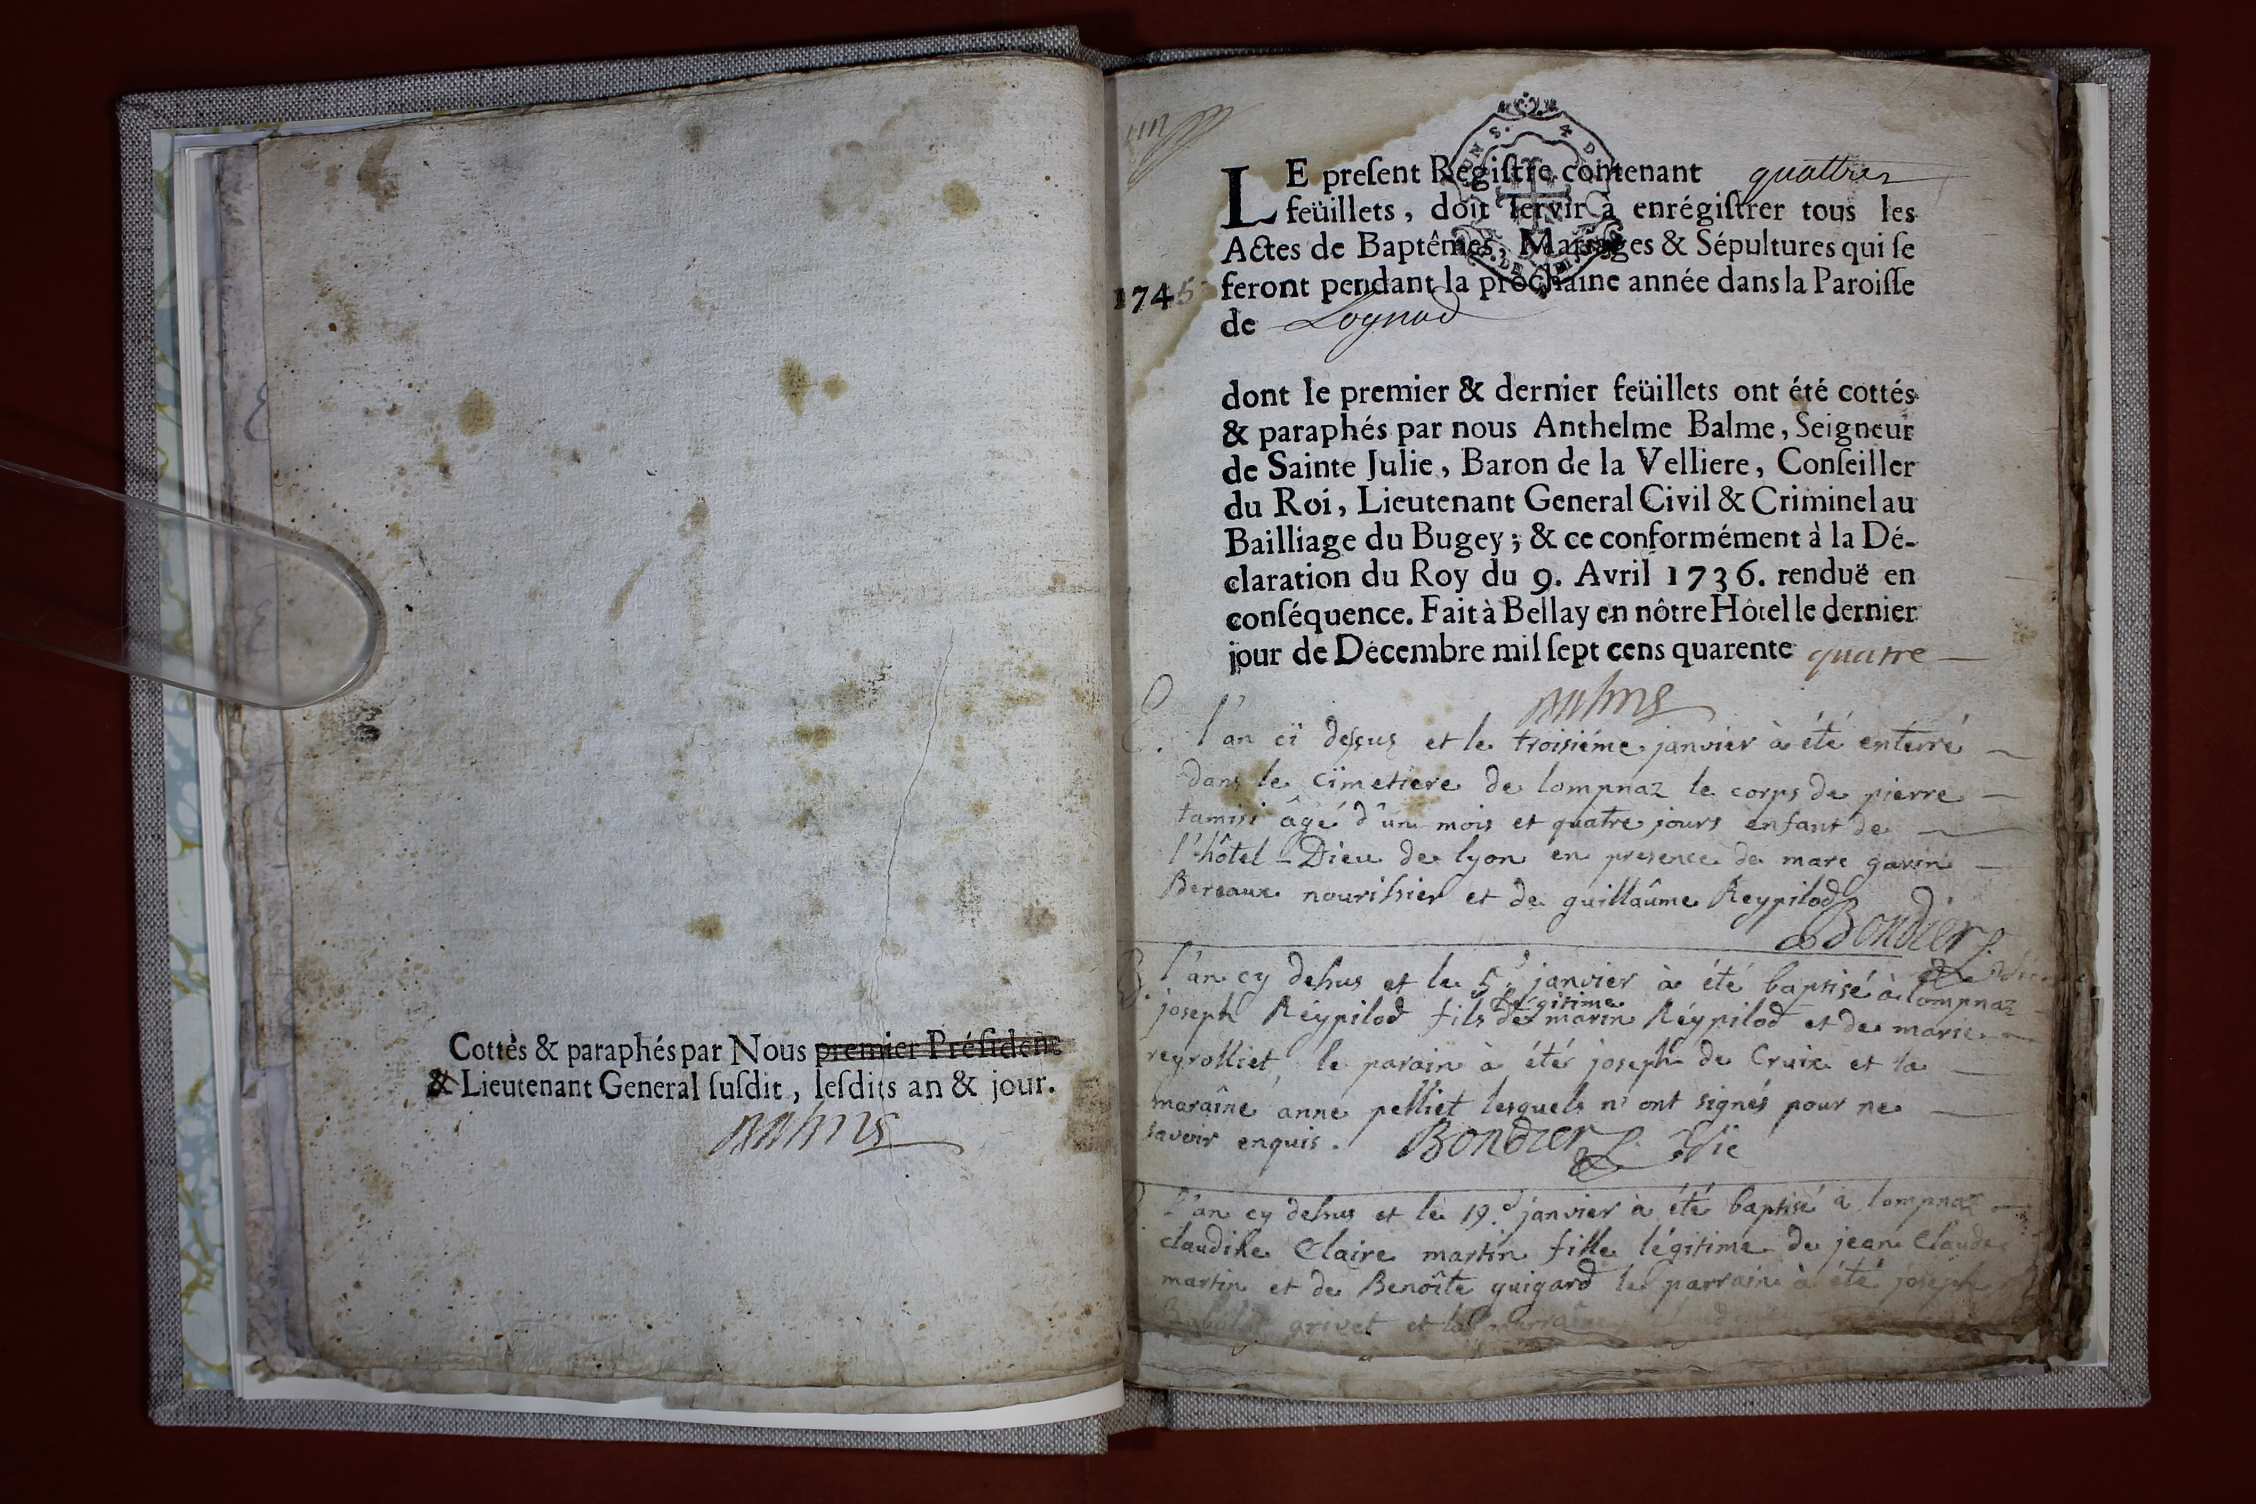 Cottés & paraphés par Nous premier Préſident
& Lieutenant General ſuſdit, leſdits an & jour.
LE preſent Regiſtre contenant quattres
feüillets, doit ſervir à enrégiſtrer tous les
Actes de Baptêmes, Mariages & Sépultures qui ſe
1745 feront pendant la prochaine année dans la Paroiſſe
de
dont le premier & dernier feüillets ont été cottés
& paraphés par nous Anthelme Balme, Seigneur
de Sainte Julie, Baron de la Velliere, Conſeiller
du Roi, Lieutenant General Civil & Criminel au
Bailliage du Bugey; & ce conformément à la Dé-
claration du Roy du 9. Avril 1736. renduë en
conſéquence. Fait à Bellay en nôtre Hôtel le dernier
jour de Décembre mil ſept cens quarente quatre
l'an cï dessus et le troisiéme janvier à été enterré
dans le cïmetiere de lompnaz le corps de pierre
tamisi âgé d'ûn mois et quatre jours enfant de
l'hôtel-Dieu de lyon en presence de marc gavin
Bereaux nourissier et de guillaûme Reypilod
Bondier
l'an cy dessus et le 5.e janvier à été baptisé à lompnaz
joseph Réypilod fils légitime de marin Réypilod et de marie
reyrolliet, le parain à étés joseph de Cruix et la
maraîne anne pelliet lesquels n'ont signés pour ne
savoir enquis. Bondier Vic
l'an cy dessus et le 19.e janvier à été baptisé à lompnaz
claudine Claire martin fille légitime de jean Claude
martin et de Benoîte guigard le parrain à été joseph
grivet et la marraine